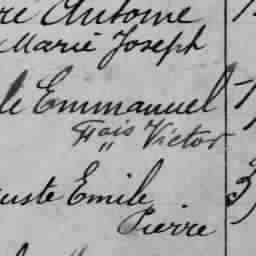 re Antoine
Marie Joseph
le Emmanuel
Frais Victor
"
uste Emile
Pierre